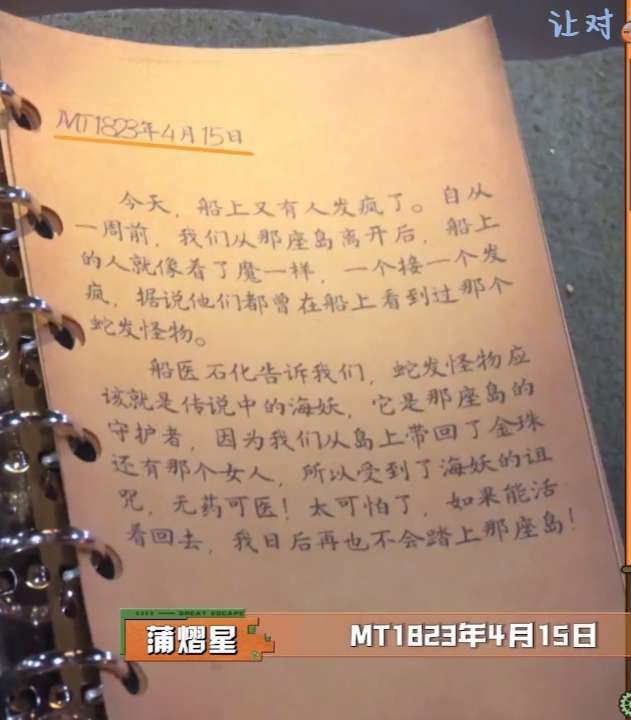 让对
MT1823年4月15日
今天，船上又有人发疯了。自从
一周前，我们从那座岛离开后，船上
的人就像着了魔一样，一个接一个发
疯，据说他们都曾在船上看到过那个
蛇发怪物。
船医石化告诉我们，蛇发怪物应
该就是传说中的海妖，它是那座岛的
守护者，因为我们从岛上带回了金珠
还有那个女人，所以受到了海妖的诅
咒，无药可医！太可怕了，如果能活
着回去，我日后再也不会踏上那座岛！
GREAT ESCAPE
蒲熠星
MT1823年4月15日